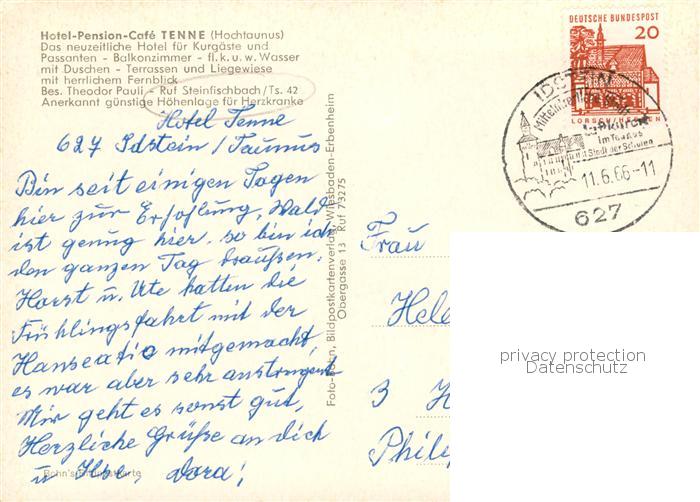 Hotel-Pension-Café TENNE (Hochtaunus)
Das neuzeitliche Hotel für Kurgäste und
Passanten - Balkonzimmer - fl. k. u. w. Wasser
mit Duschen - Terrassen und Liegewiese
mit herrlichem Fernblick
Bes. Theodor Pauli - Ruf Steinfischbach/Ts. 42
Anerkannt günstige Höhenlage für Herzkranke
Hotel Tenne
627 Idstein/Taunus
Bin seit einigen Tagen
hier zur Erholung, Wald
ist genug hier, so bin ich
den ganzen Tag draußen.
Horst u. Ute hatten die
Frühlingsfahrt mit der
Hanseatic mitgemacht,
es war aber sehr anstrengend
Mir geht es sonst gut,
Herzliche Grüße an dich
u Ilse, Dora!
Foto-Bohn, Bildpostkartenverlag, Wiesbaden-Erbenheim
Obergasse 13 Ruf 73275
DEUTSCHE BUNDESPOST
20
LORSCH/HESSEN
IDSTEIN
im Taunus
und Stadt der Schulen
11.6.66-11
627
Frau
Hele
3 H
Philip
privacy protection
Datenschutz